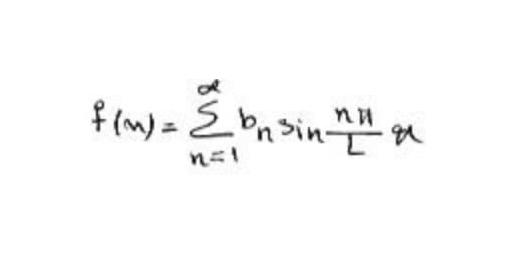 f(x) = \sum_{n=1}^{\infty} b_n \sin \frac{n\pi}{L} x